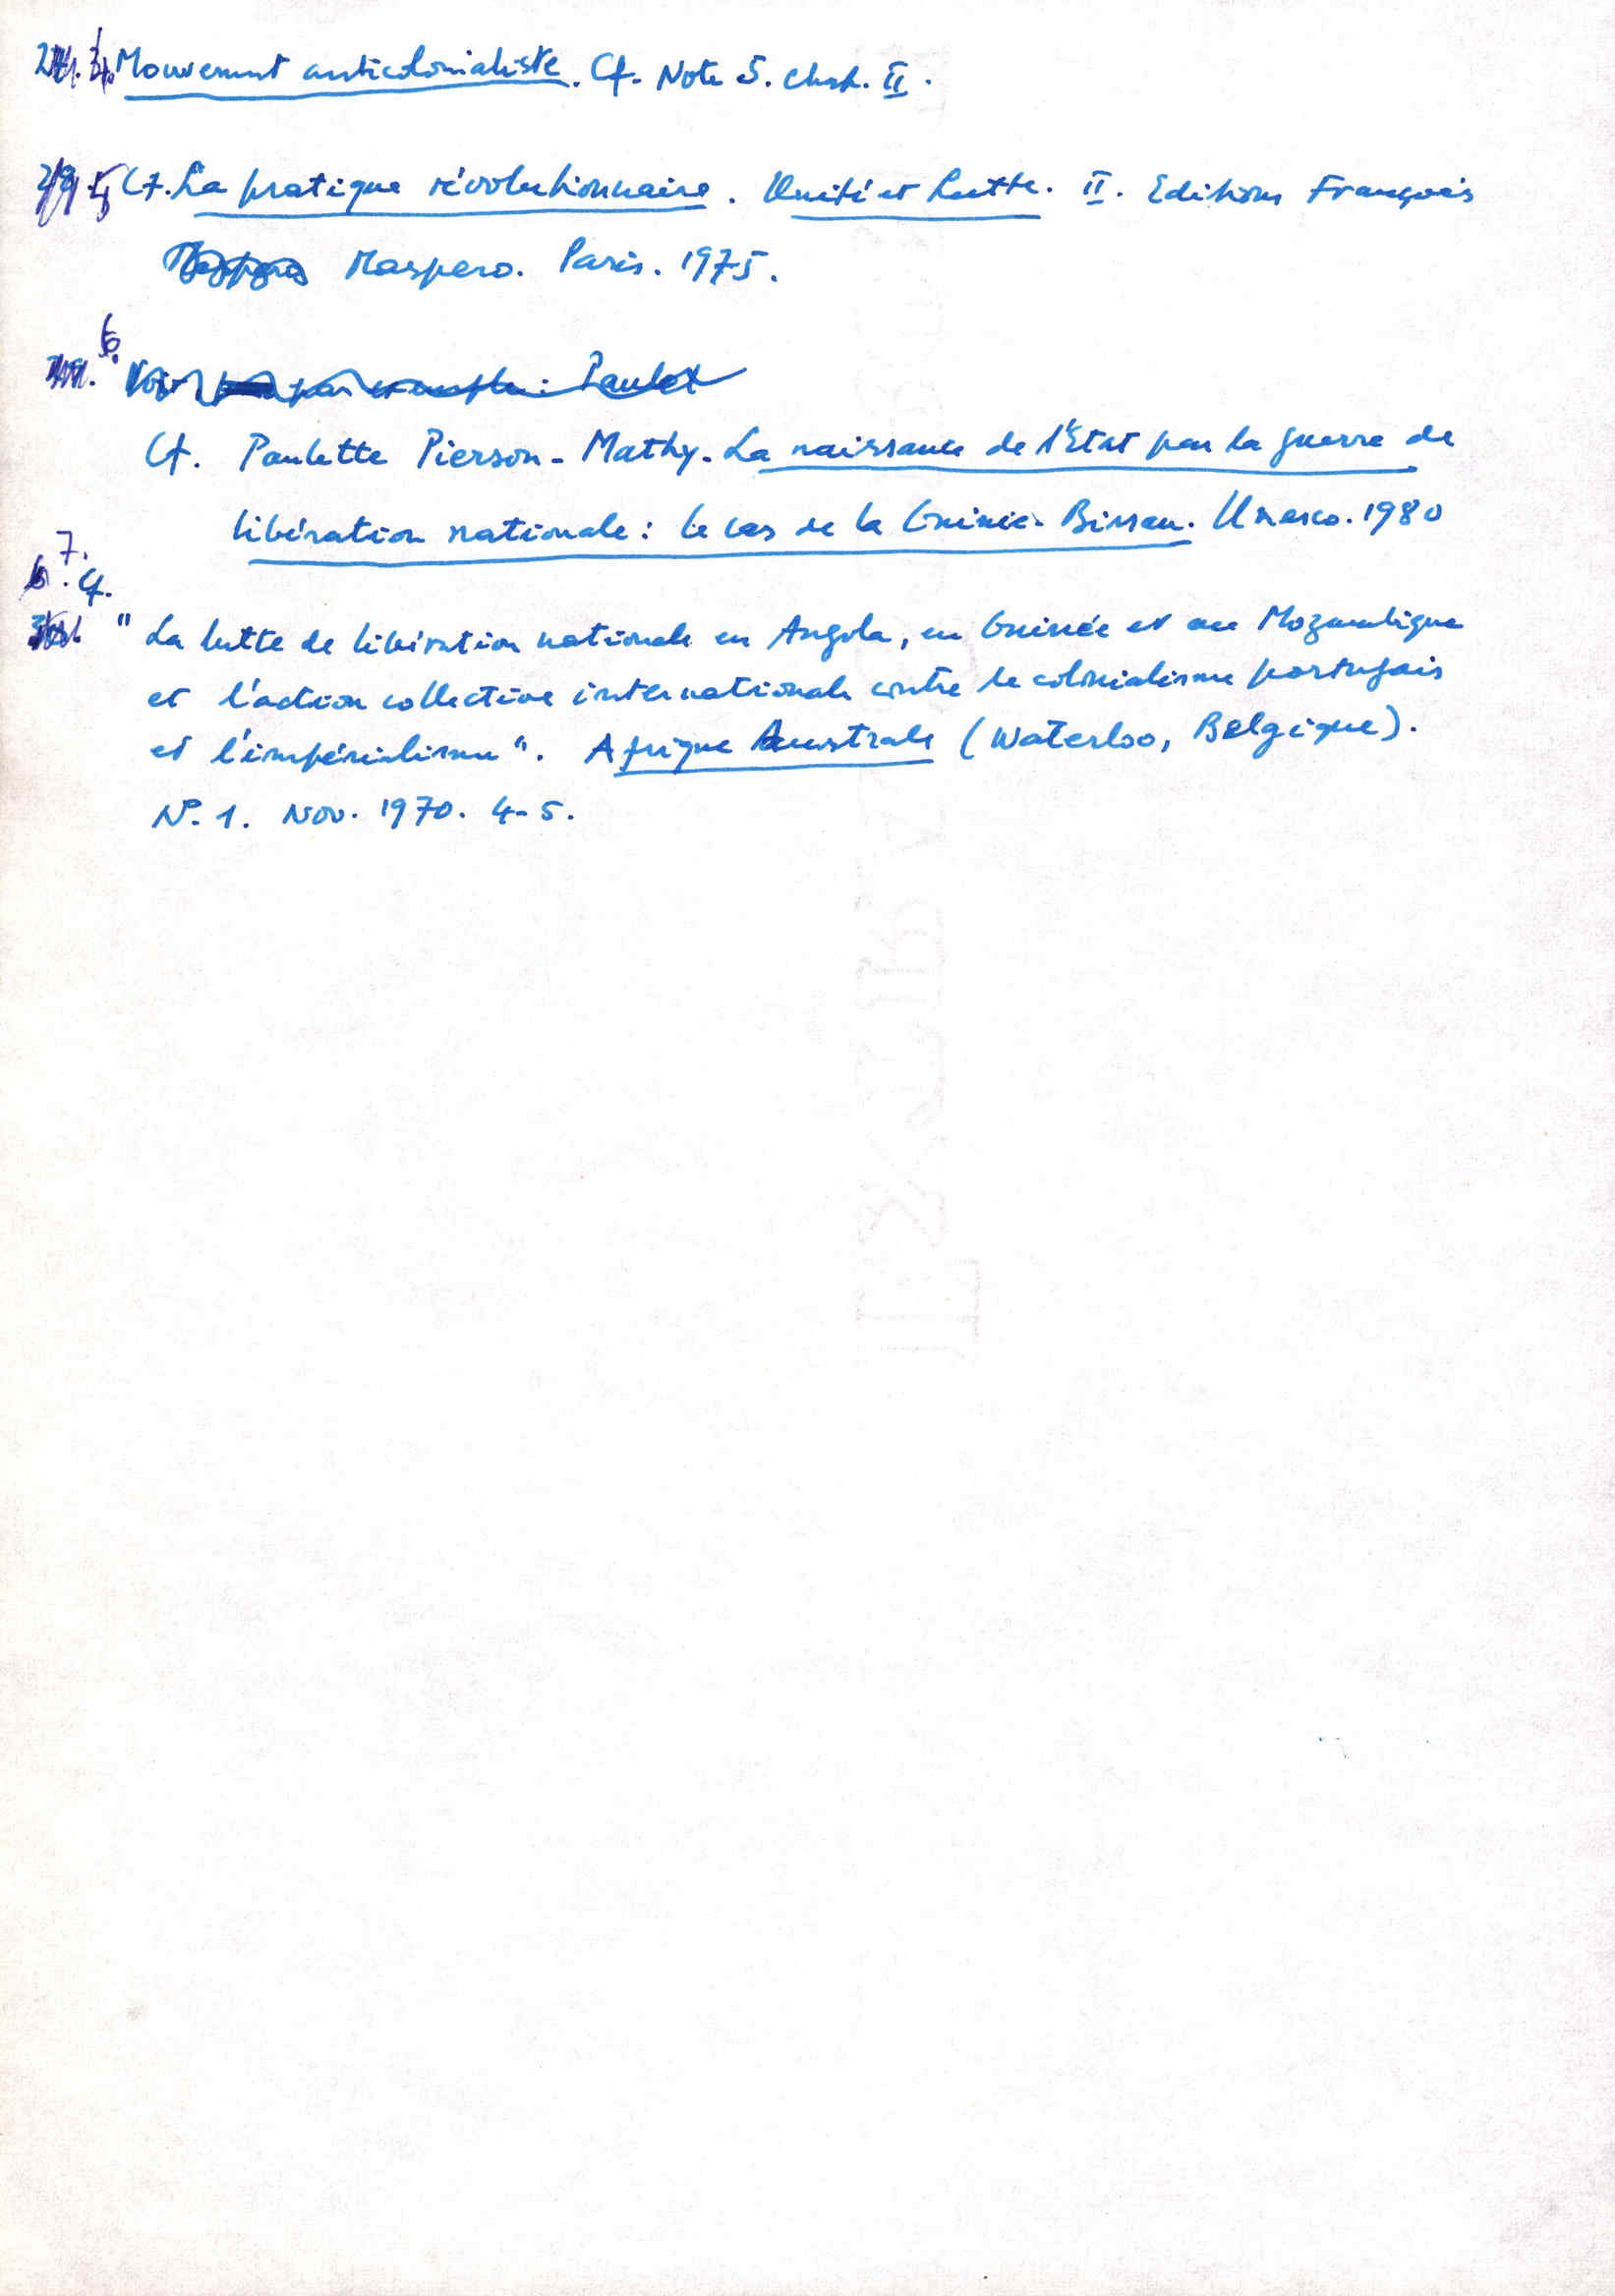 4. Mouvement anticolonialiste. Cf. Note 5. Chap. II.
5 Cf. La pratique révolutionnaire. Unité et Lutte. II. Editions François
Maspero. Paris. 1975.
6.
Cf. Paulette Pierson-Mathy. La naissance de l'Etat par la guerre de
libération nationale: le cas de la Guinée-Bissau. Unesco. 1980
7.
Cf.
"La lutte de libération nationale en Angola, en Guinée et au Mozambique
et l'action collective internationale contre le colonialisme portugais
et l'impérialisme". Afrique Australe (Waterloo, Belgique).
Nº. 1. Nov. 1970. 4-5.